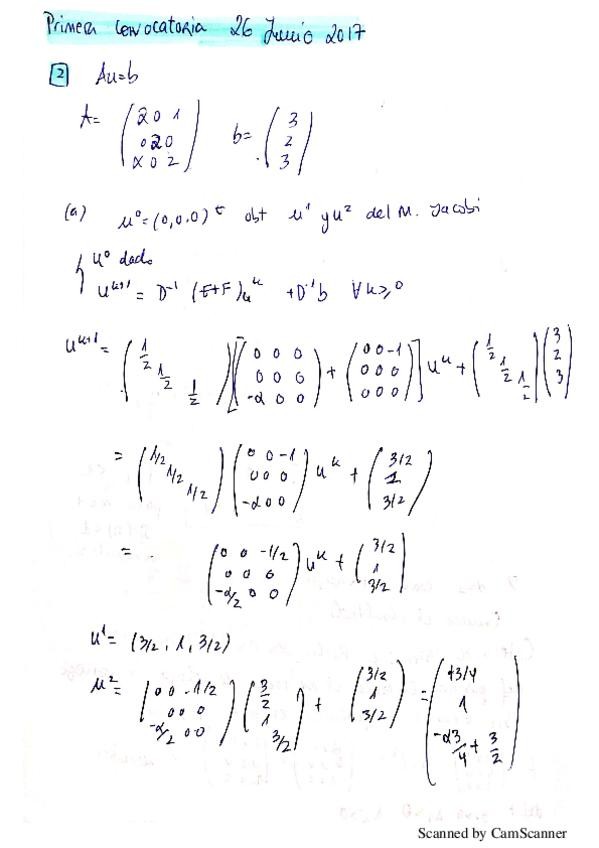 Primera Convocatoria 26 Junio 2017
2 Au=b
A= (2 0 1 / 0 2 0 / α 0 2) b= (3 / 2 / 3)
(a) u⁰=(0,0,0)ᵗ obt u¹ y u² del M. Jacobi
{ u⁰ dado
uᵏ⁺¹ = D⁻¹ (E+F) uᵏ + D⁻¹b ∀k≥0
uᵏ⁺¹ = (1/2 1/2 1/2) [(0 0 0 / 0 0 0 / -α 0 0) + (0 0 -1 / 0 0 0 / 0 0 0)] uᵏ + (1/2 1/2 1/2) (3 / 2 / 3)
= (1/2 1/2 1/2) (0 0 -1 / 0 0 0 / -α 0 0) uᵏ + (3/2 / 1 / 3/2)
= (0 0 -1/2 / 0 0 0 / -α/2 0 0) uᵏ + (3/2 / 1 / 3/2)
u¹= (3/2, 1, 3/2)
u²= (0 0 -1/2 / 0 0 0 / -α/2 0 0) (3/2 / 1 / 3/2) + (3/2 / 1 / 3/2) = (+3/4 / 1 / -α3/4 + 3/2)
Scanned by CamScanner